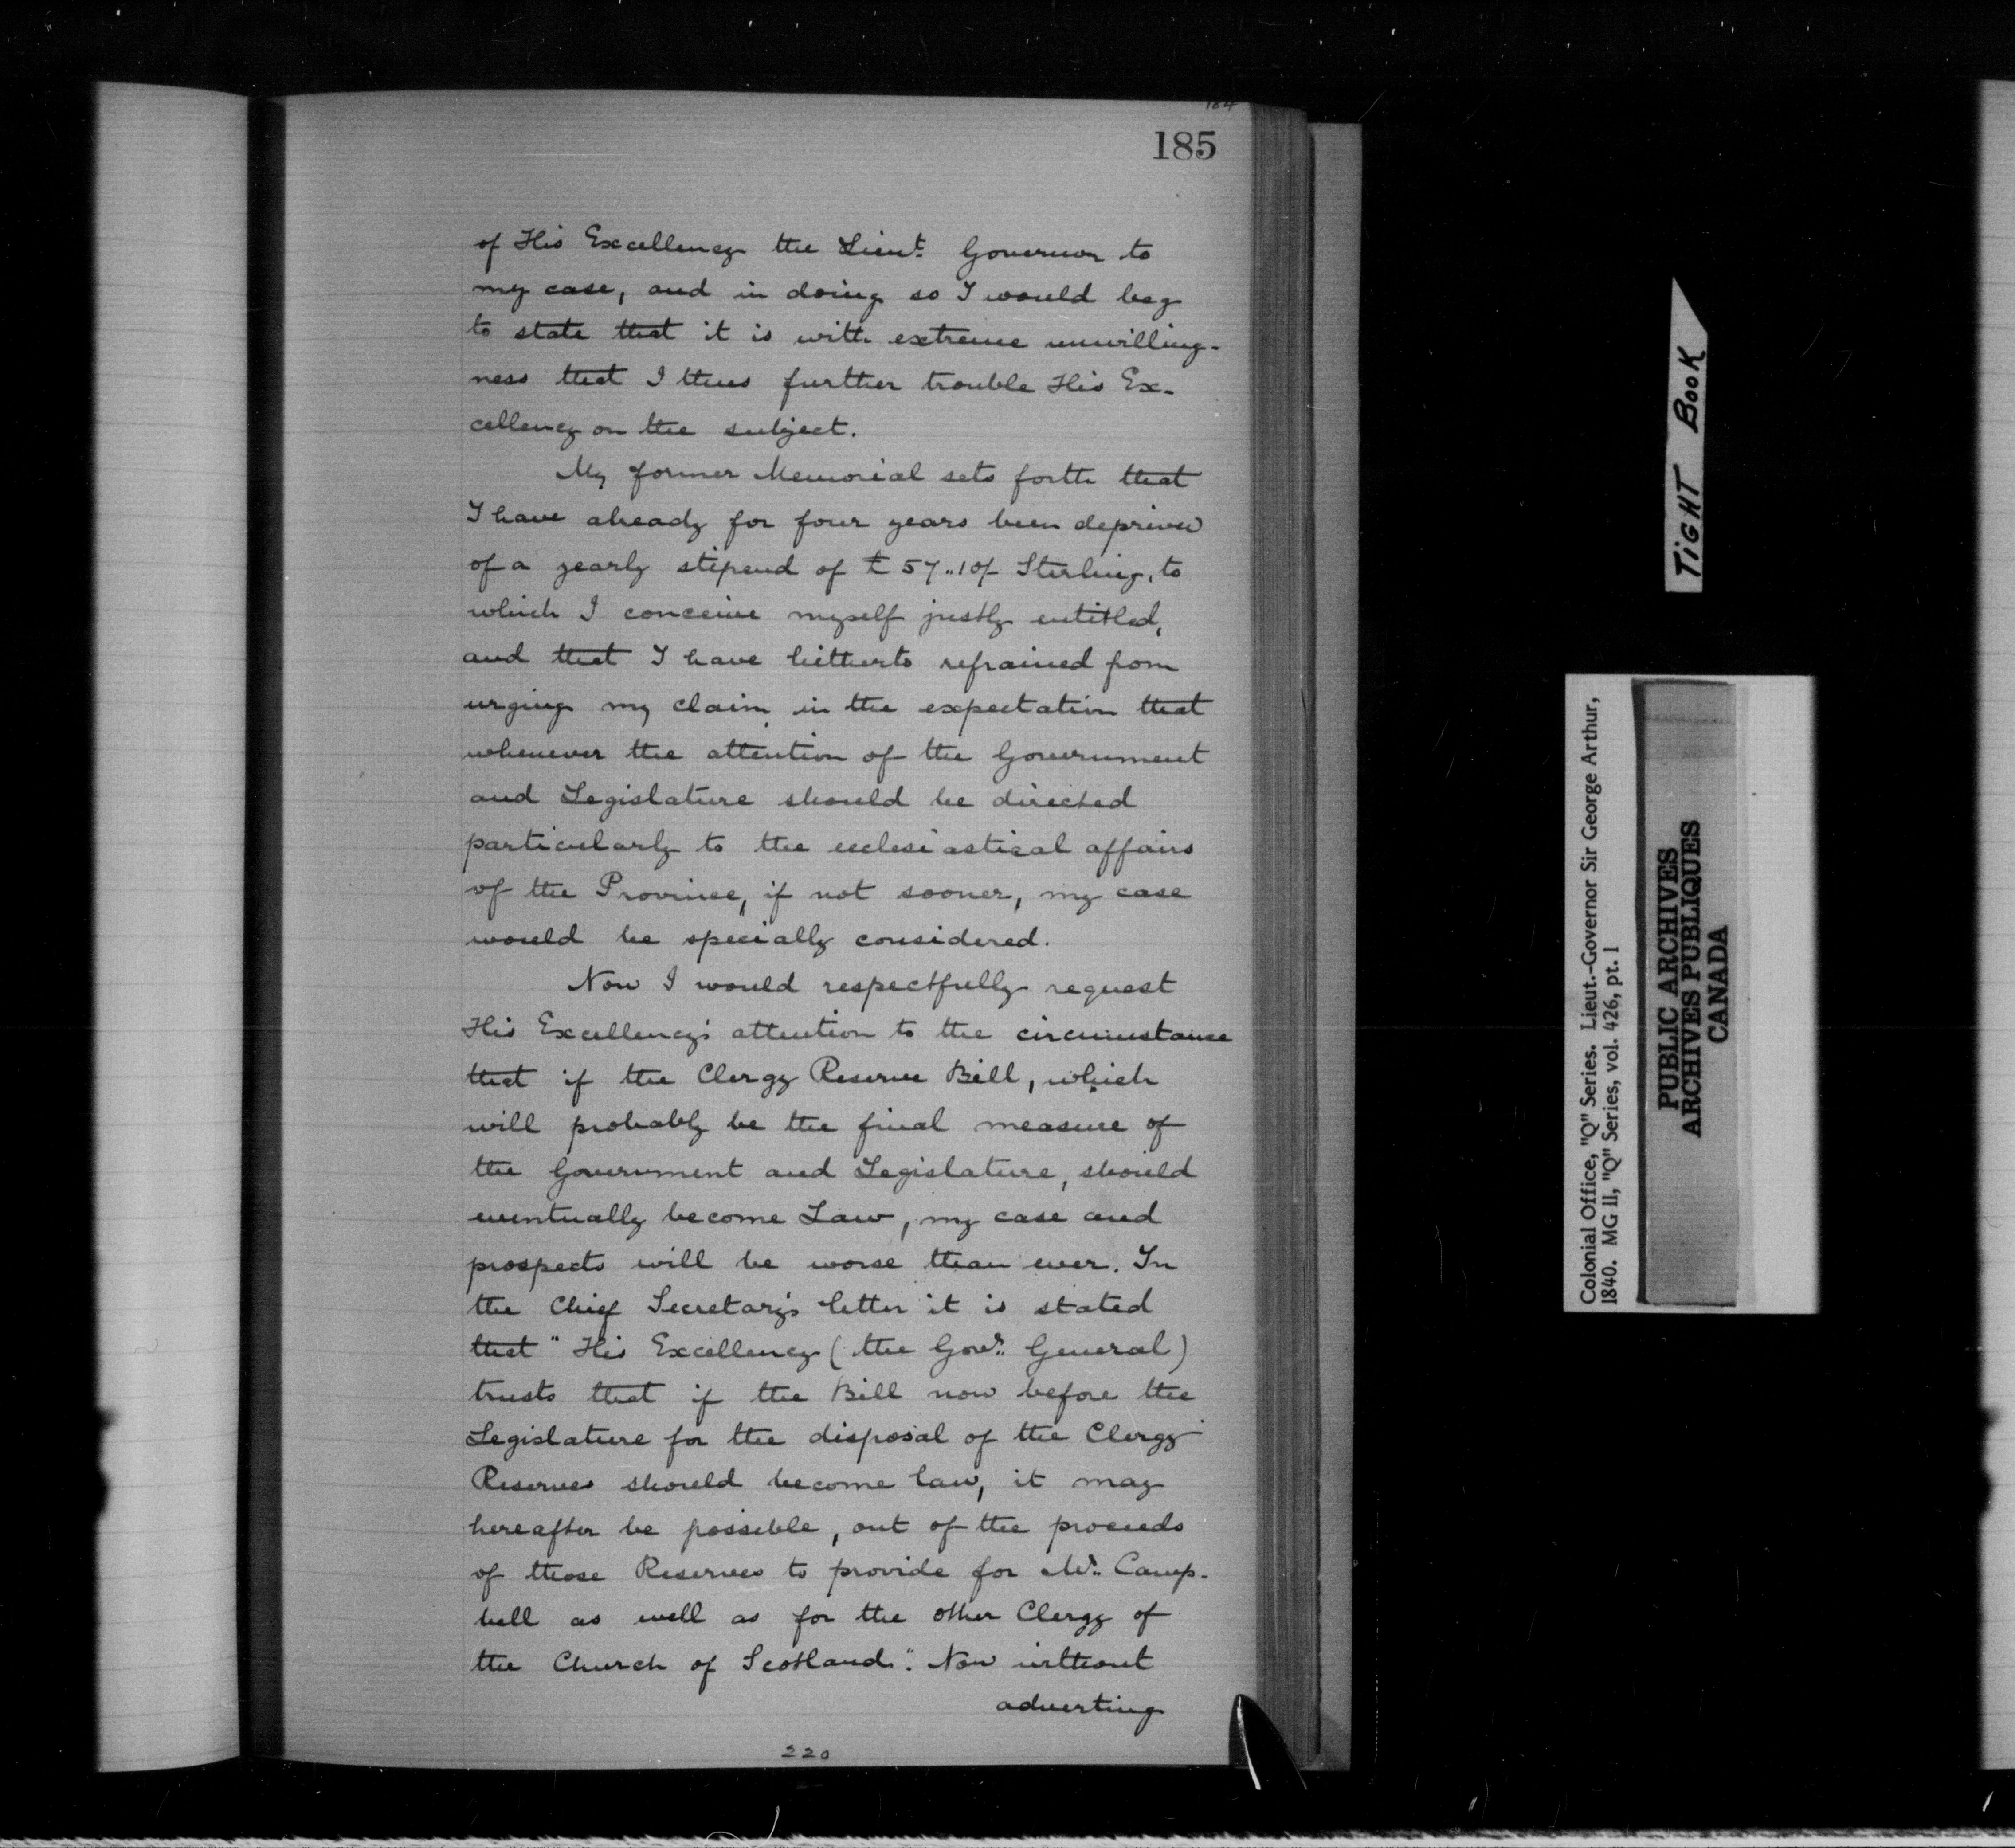 184
185
of His Excellency the Lieut. Governor to
my case, and in doing so I would beg
to state that it is with extreme unwilling-
ness that I thus further trouble His Ex-
cellency on the subject.
My former Memorial sets forth that
I have already for four years been deprived
of a yearly stipend of £57..10/ Sterling, to
which I conceive myself justly entitled,
and that I have hitherto refrained from
urging my claim in the expectation that
whenever the attention of the Government
and Legislature should be directed
particularly to the ecclesiastical affairs
of the Province, if not sooner, my case
would be specially considered.
Now I would respectfully request
His Excellency's attention to the circumstance
that if the Clergy Reserve Bill, which
will probably be the final measure of
the Government and Legislature, should
eventually become Law, my case and
prospects will be worse than ever. In
the Chief Secretary's letter it is stated
that "His Excellency (the Govr. General)
trusts that if the Bill now before the
Legislature for the disposal of the Clergy
Reserves should become law, it may
hereafter be possible, out of the proceeds
of those Reserves to provide for Mr. Camp-
bell as well as for the other Clergy of
the Church of Scotland." Now without
adverting
220
TIGHT BOOK
Colonial Office, "Q" Series. Lieut.-Governor Sir George Arthur,
1840. MG 11, "Q" Series, vol. 426, pt. 1
PUBLIC ARCHIVES
ARCHIVES PUBLIQUES
CANADA